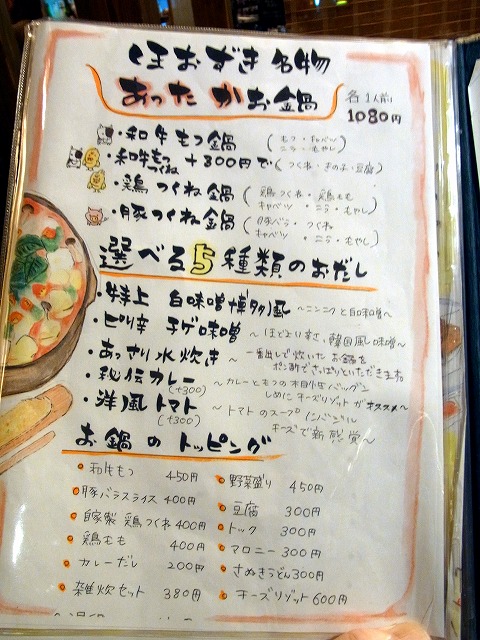 ほおずき名物
あったかお鍋
各1人前
1080円
・和牛もつ鍋 (もつ・キャベツ
ニラ・もやし)
・和牛もつ つくね +300円で (つくね・きの子・豆腐)
・鶏つくね鍋 (鶏つくね・鶏もも
キャベツ・ニラ・もやし)
・豚つくね鍋 (豚バラ・つくね
キャベツ・ニラ・もやし)
選べる5種類のおだし
・特上 白味噌博多風 ~ニンニクと白味噌~
・ピリ辛 チゲ味噌 ~ほどよい辛さ、韓国風味噌~
・あっさり水炊き ~一番出しで炊いたお鍋を
ポン酢でさっぱりといただきます~
・秘伝カレー (+300) ~カレーともつの相性バツグン
しめにチーズリゾットがオススメ~
・洋風トマト (+300) ~トマトのスープにバジル
チーズで新感覚~
お鍋のトッピング
和牛もつ 450円
豚バラスライス 400円
自家製 鶏つくね 400円
鶏もも 400円
カレーだし 200円
雑炊セット 380円
野菜盛り 450円
豆腐 300円
トック 300円
マロニー 300円
さぬきうどん 300円
チーズリゾット 600円